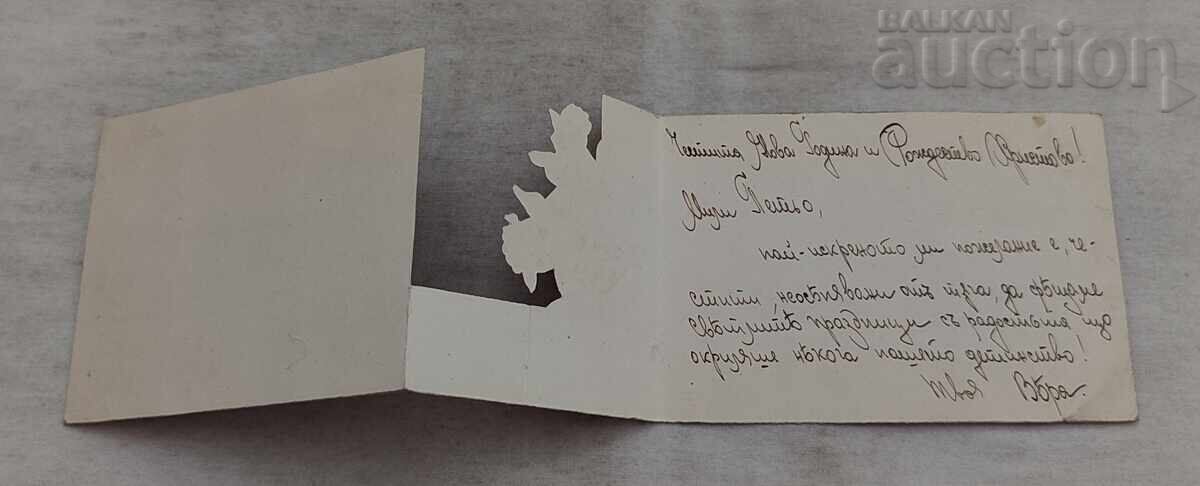 BALKAN
auction
Честита Нова Година и Рождество Христово!
Мили Петьо,
най-искреното ми пожелание е, че-
стити, неосѣнявани отъ тѫга, да
свѣтлитѣ празници съ радостьта що
нѣкога нашето детинство!
твоя Вѣра.